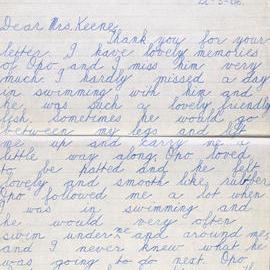 22-3-56.
Dear Mrs. Keene,
Thank you for your
letter. I have lovely memories
of Opo, and I miss him very
much. I hardly missed a day
in swimming with him and
he was such a lovely friendly
fish. Sometimes he would go
between my legs and lift
me up and carry me a
little way along. Opo loved
to be patted and he felt
lovely and smooth like rubber.
Opo followed me a lot when
I was in swimming and
he would very often
swim under me and around me,
and I never knew what he
was going to do next. Opo